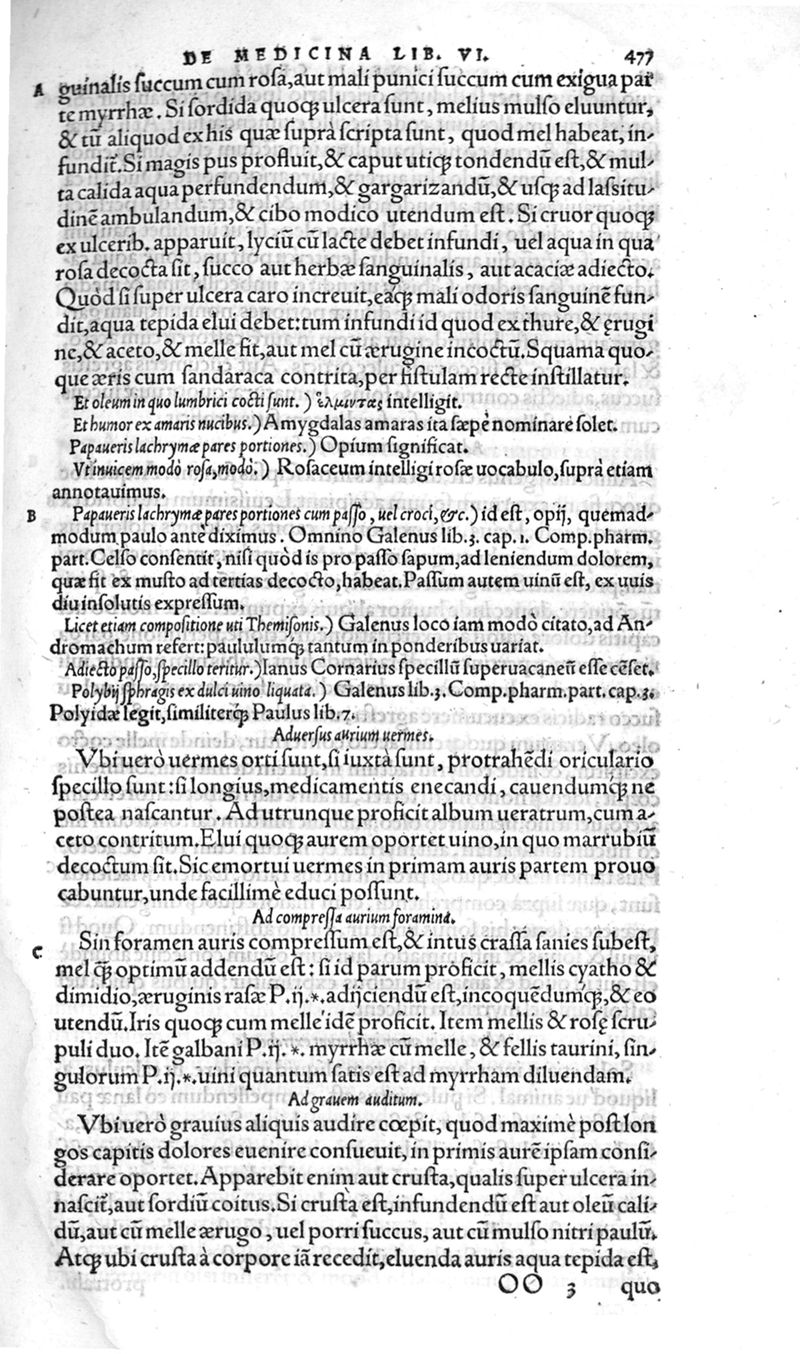 DE MEDICINA LIB. VI. 477
A guinalis succum cum rosa, aut mali punici succum cum exigua par
te myrrhæ. Si sordida quoqꝫ ulcera sunt, melius mulso eluuntur,
& tū aliquod ex his quæ suprà scripta sunt, quod mel habeat, in-
fundit̃. Si magis pus profluit, & caput utiqꝫ tondendū est, & mul-
ta calida aqua perfundendum, & gargarizandū, & usqꝫ ad lassitu-
dinē ambulandum, & cibo modico utendum est. Si cruor quoqꝫ
ex ulcerib. apparuit, lyciū cū lacte debet infundi, uel aqua in qua
rosa decocta sit, succo aut herbæ sanguinalis, aut acaciæ adiecto.
Quòd si super ulcera caro increuit, eaqꝫ mali odoris sanguinē fun-
dit, aqua tepida elui debet: tum infundi id quod ex thure, & ęrugi
ne, & aceto, & melle fit, aut mel cū ærugine incoctū. Squama quo-
que æris cum sandaraca contrita, per fistulam recte instillatur.
Et oleum in quo lumbrici cocti sunt.) ἕλμινταες intelligit.
Et humor ex amaris nucibus.) Amygdalas amaras ita sæpè nominare solet.
Papaueris lachrymæ pares portiones.) Opium significat.
Vt inuicem modò rosa, modò.) Rosaceum intelligi rosæ uocabulo, suprà etiam
annotauimus.
B Papaueris lachrymæ pares portiones cum passo, uel croci, &c.) id est, opij, quemad-
modum paulo antè diximus. Omnino Galenus lib.3. cap. 1. Comp.pharm.
part. Celso consentit, nisi quòd is pro passo sapum, ad leniendum dolorem,
quæ fit ex musto ad tertias decocto, habeat. Passum autem uinū est, ex uuis
diu insolutis expressum.
Licet etiam compositione uti Themisonis.) Galenus loco iam modò citato, ad An-
dromachum refert: paululumqꝫ tantum in ponderibus uariat.
Adiecto passo, specillo teritur.) Ianus Cornarius specillū superuacaneū esse cēset.
Polybij sphragis ex dulci uino liquata.) Galenus lib.3. Comp.pharm.part. cap.3.
Polyidæ legit, similiterqꝫ Paulus lib.7.
Aduersus aurium uermes.
Vbi uerò uermes orti sunt, si iuxtà sunt, protrahēdi oriculario
specillo sunt: si longius, medicamentis enecandi, cauendumqꝫ ne
postea nascantur. Ad utrunque proficit album ueratrum, cum a-
ceto contritum. Elui quoqꝫ aurem oportet uino, in quo marrubiū
decoctum sit. Sic emortui uermes in primam auris partem prouo
cabuntur, unde facillimè educi possunt.
Ad compressa aurium foramina.
C Sin foramen auris compressum est, & intus crassa sanies subest,
mel qꝫ optimū addendū est: si id parum proficit, mellis cyatho &
dimidio, æruginis rasæ P.ij.*. adijciendū est, incoquēdumqꝫ, & eo
utendū. Iris quoqꝫ cum melle idē proficit. Item mellis & rosę scru-
puli duo. Itē galbani P.ij. *. myrrhæ cū melle, & fellis taurini, sin-
gulorum P.ij.*. uini quantum satis est ad myrrham diluendam.
Ad grauem auditum.
Vbi uerò grauius aliquis audire cœpit, quod maximè post lon
gos capitis dolores euenire consueuit, in primis aurē ipsam consi-
derare oportet. Apparebit enim aut crusta, qualis super ulcera in-
nascit̃, aut sordiū coitus. Si crusta est, infundendū est aut oleū cali-
dū, aut cū melle ærugo, uel porri succus, aut cū mulso nitri paulū.
Atqꝫ ubi crusta à corpore iā recedit, eluenda auris aqua tepida est,
OO 3 quo